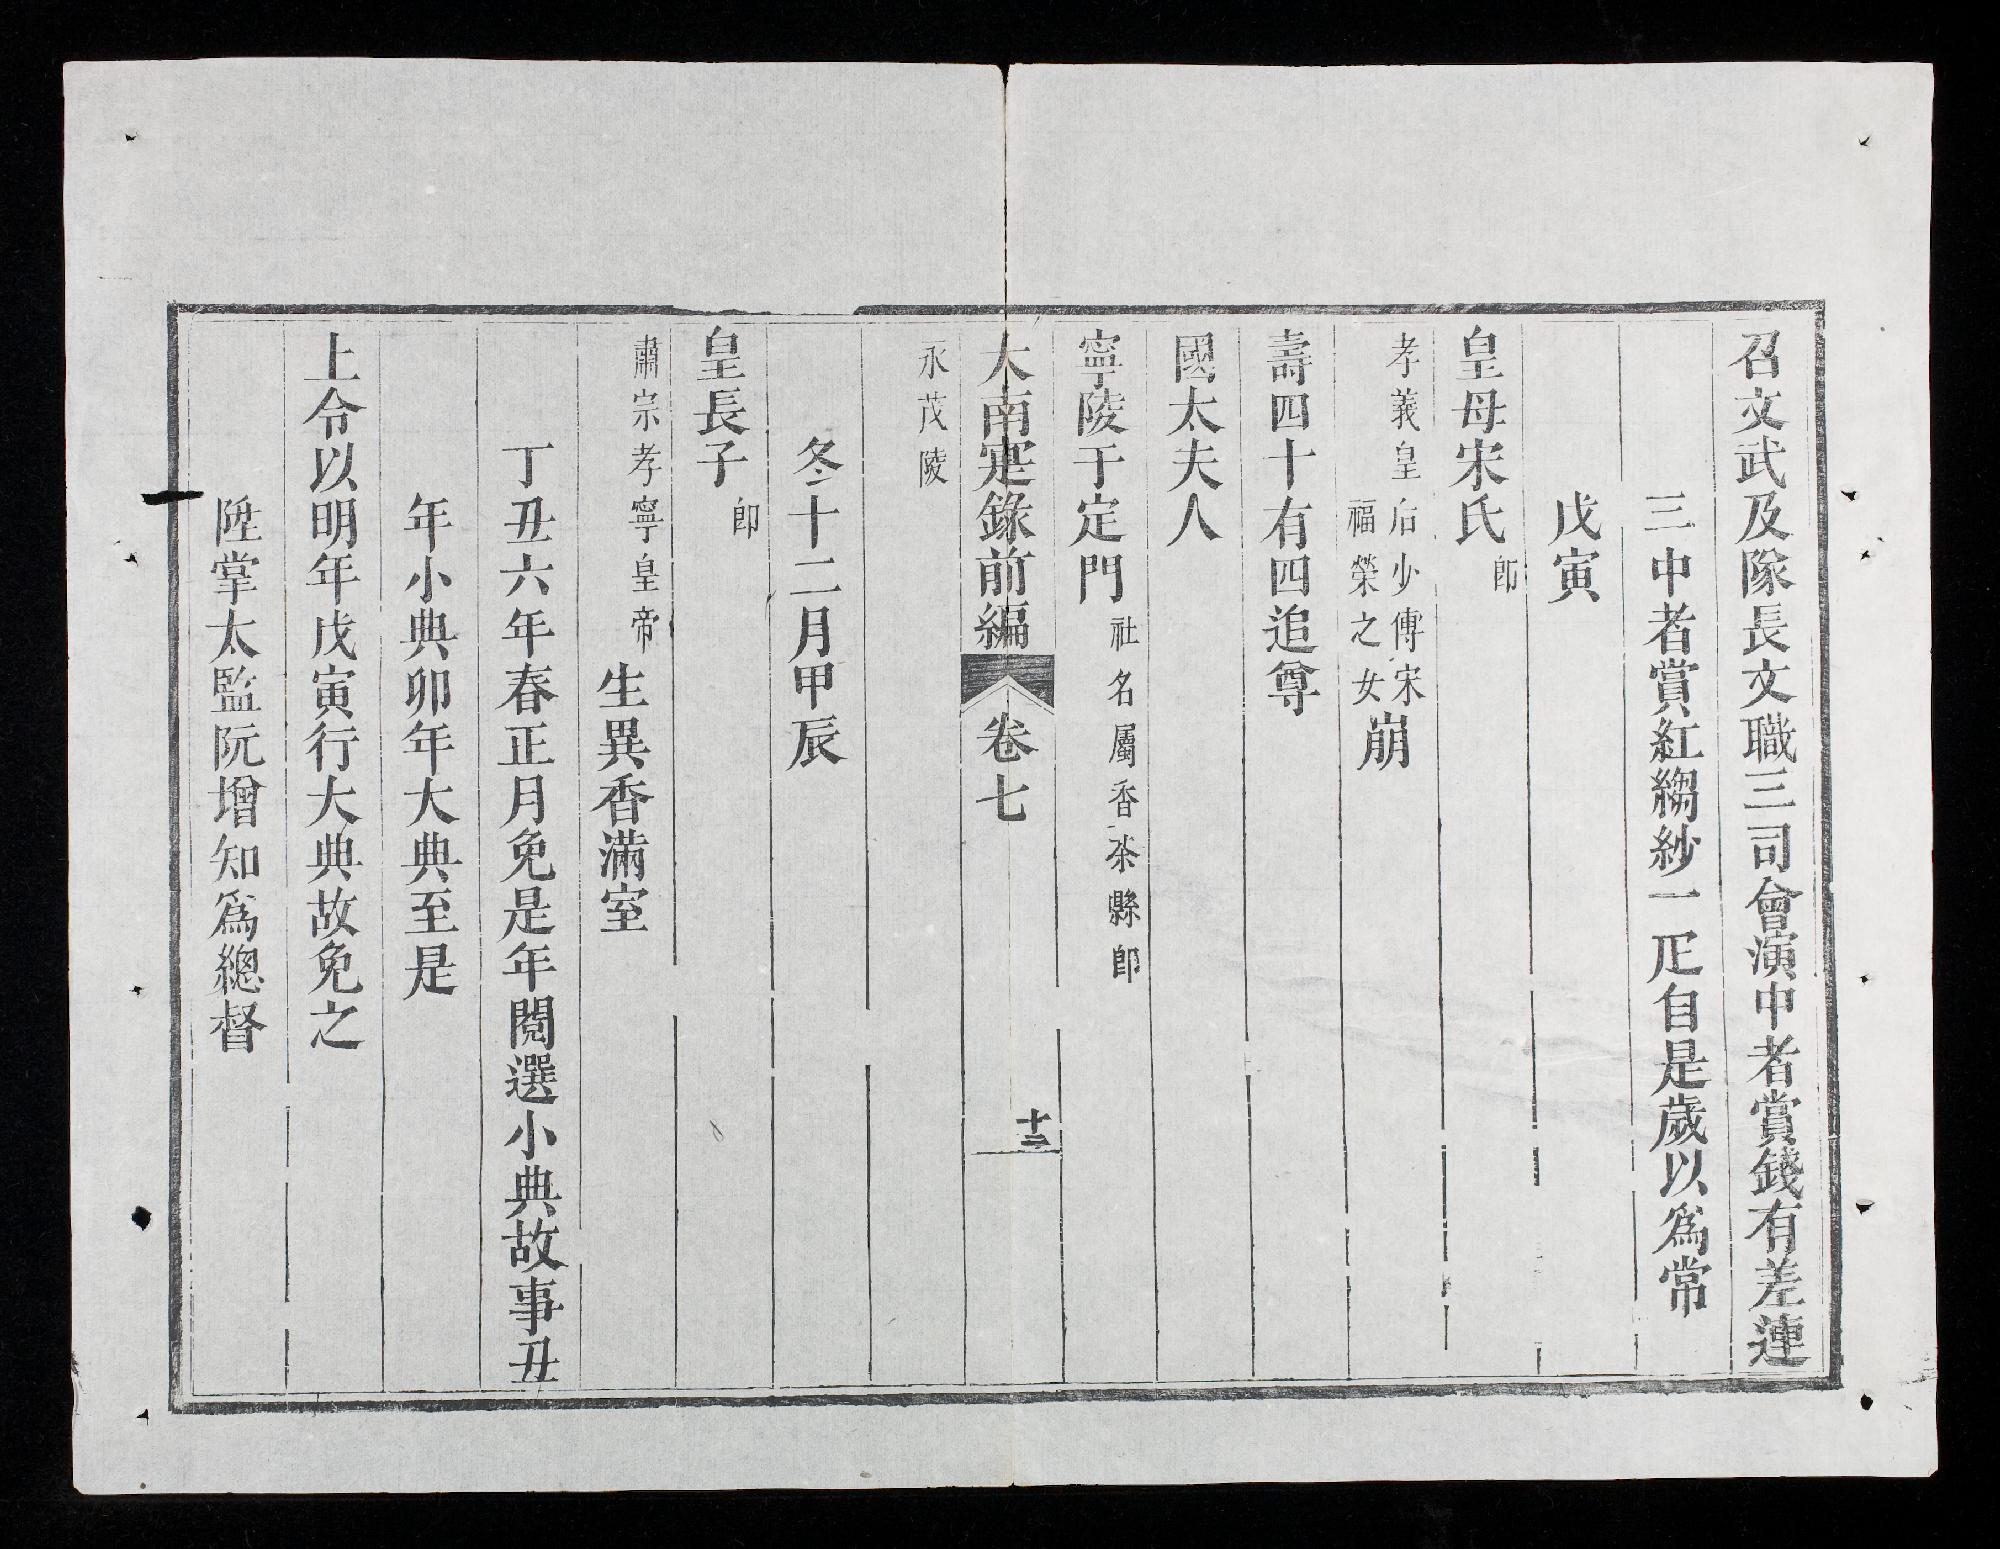 召文武及隊長文職三司會演中者賞錢有差連
三中者賞紅縐紗一疋自是歲以爲常
戊寅
皇母宋氏即
孝義皇后少傅宋
福榮之女
崩
壽四十有四追尊
國太夫人
寧陵于定門社名屬香茶縣即
大南寔錄前編 卷七 十三
永茂陵
冬十二月甲辰
皇長子即
肅宗孝寧皇帝生異香滿室
丁丑六年春正月免是年閱選小典故事丑
年小典卯年大典至是
上令以明年戊寅行大典故免之
陞掌太監阮增知爲總督